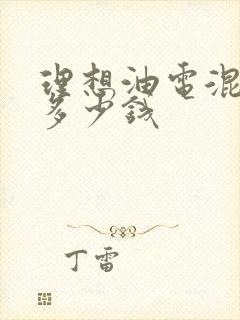 理想油电混
多少钱
丁雷